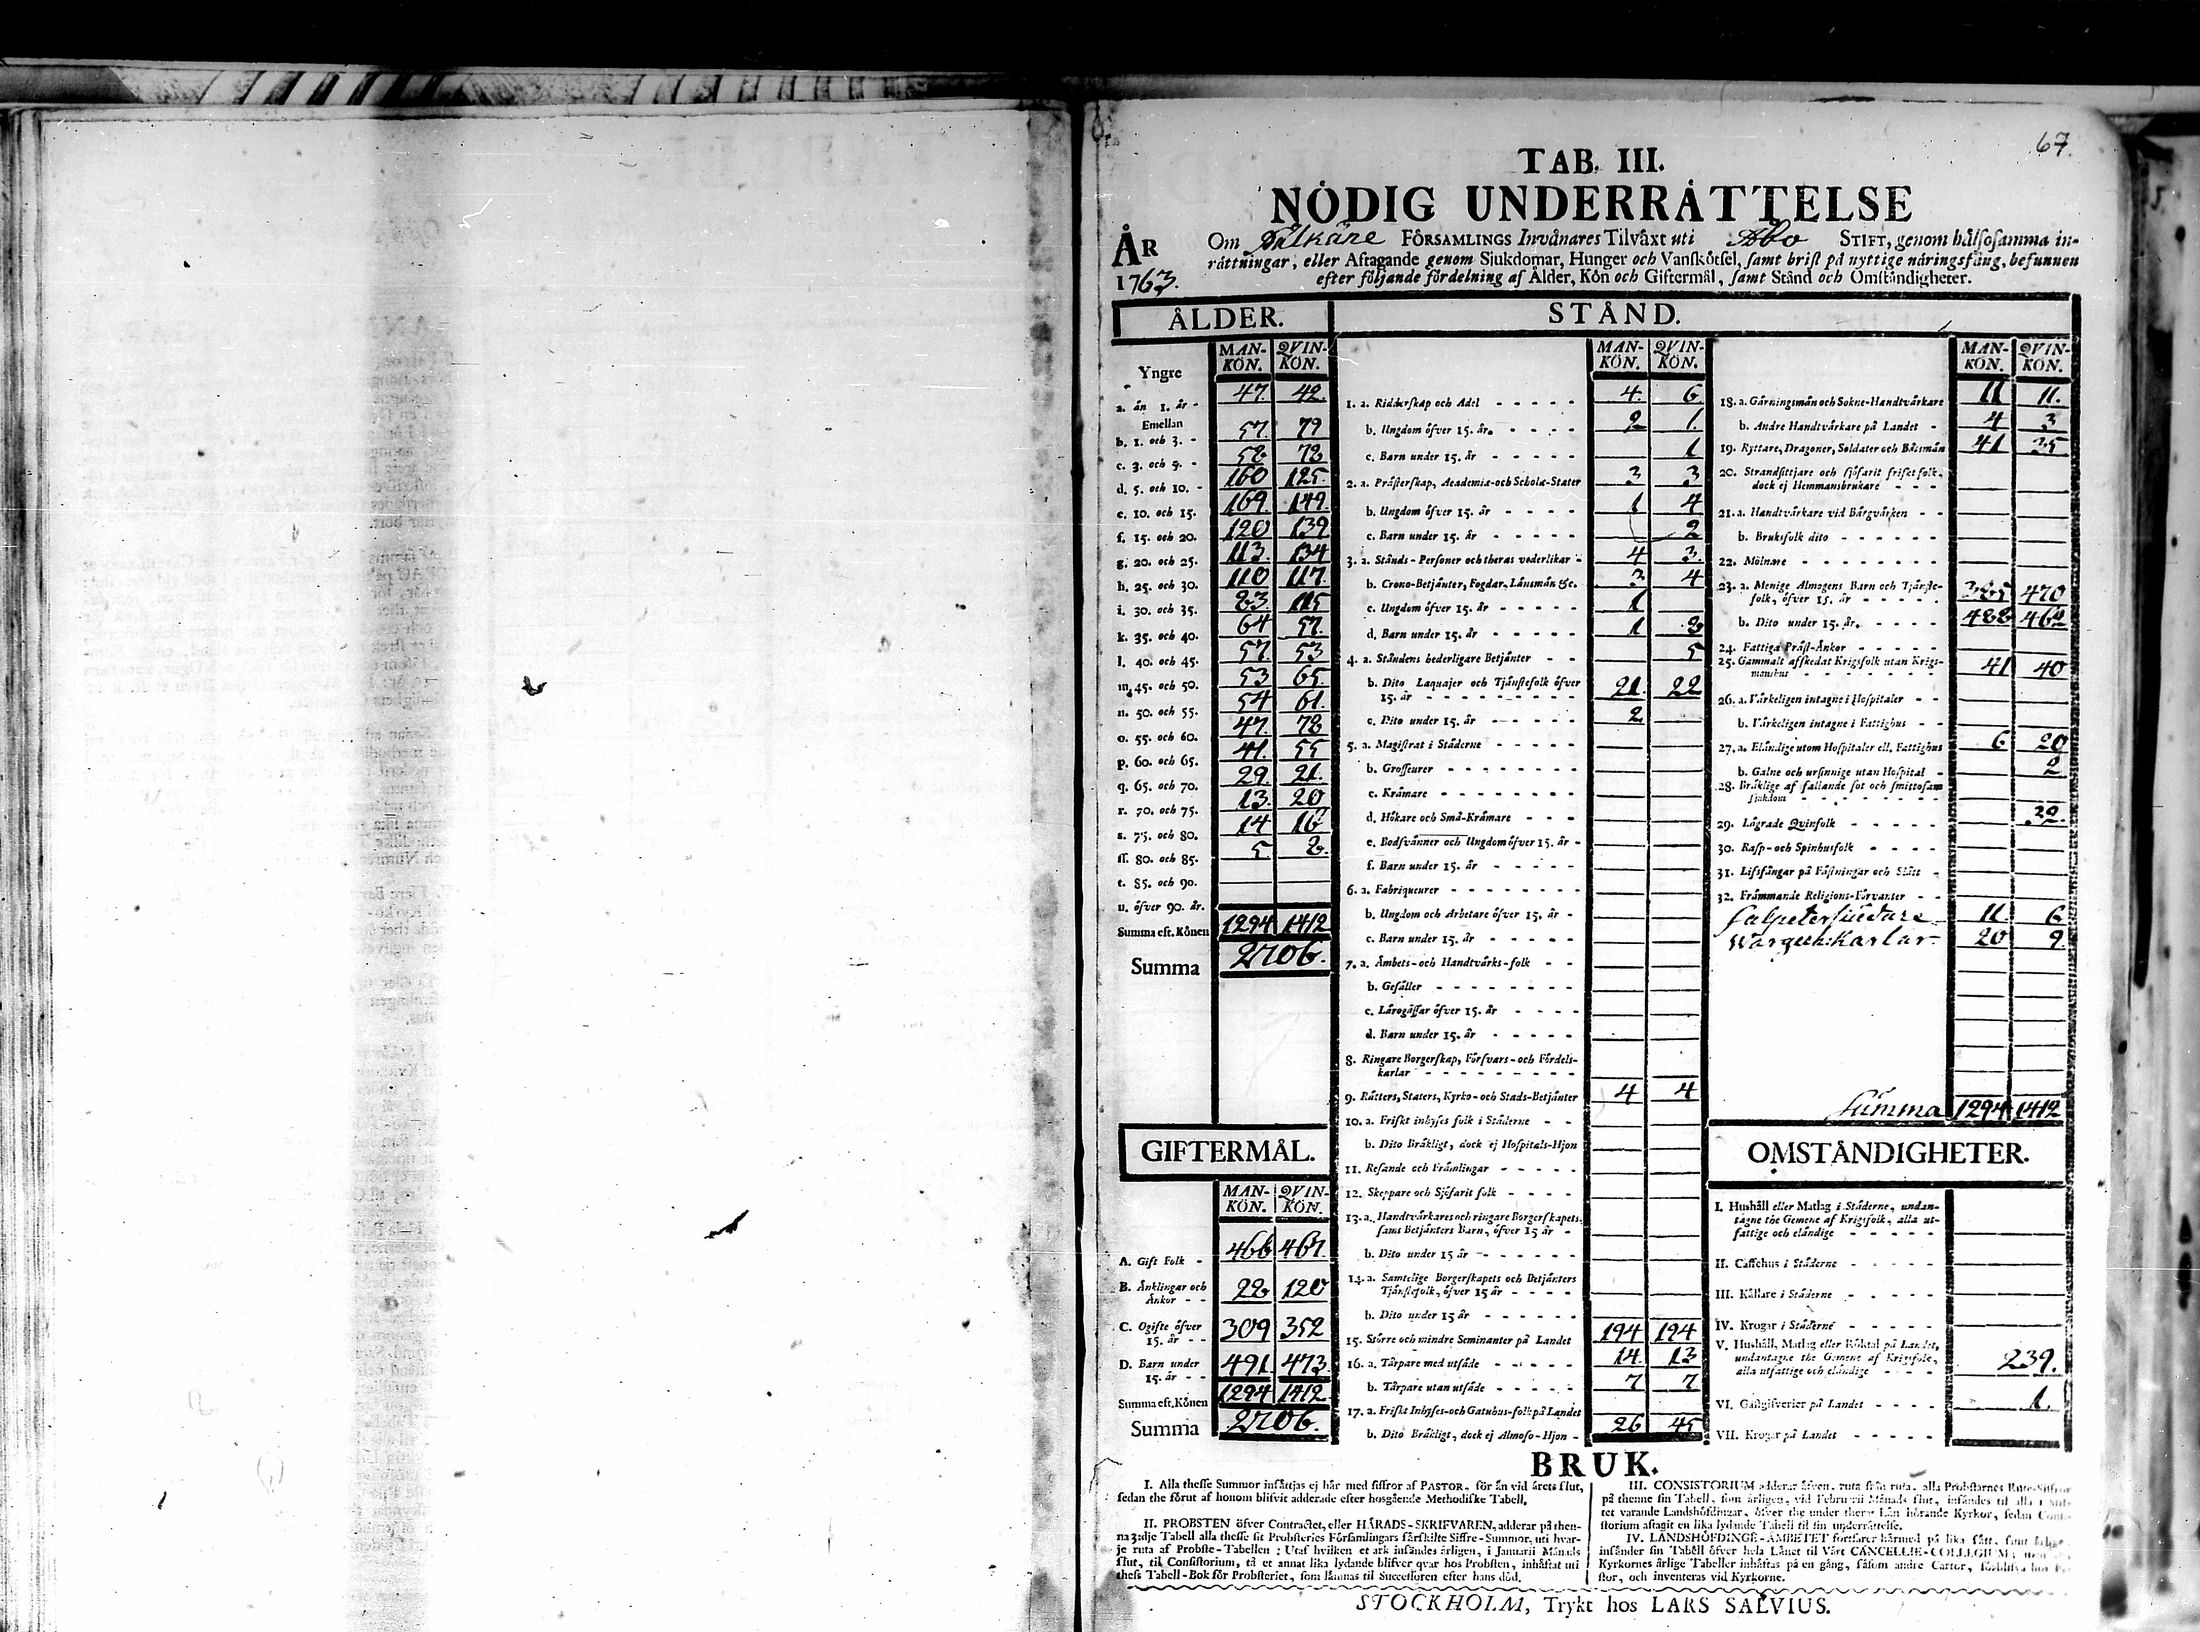 67.
TAB. III.
NÖDIG UNDERRÅTTELSE
ÅR 1763.
Om Pälkäne FÖRSAMLINGS Invånares Tilvåxt uti Åbo STIFT, genom hålsosamma in-
råttningar, eller Aftagande genom Sjukdomar, Hunger och Vanskötsel, samt brist på nyttige nåringsfång, befunnen
efter följande fördelning af Ålder, Kön och Giftermål, samt Stånd och Omståndigheter.
ÅLDER.
MAN-KÖN. QVIN-KÖN.
Yngre
a. än 1. år - 47. 42.
Emellan
b. 1. och 3. - 57. 79
c. 3. och 5. - 58 78
d. 5. och 10. - 160 125.
e. 10. och 15. 169. 149.
f. 15. och 20. 120 139
g. 20. och 25. 113. 134
h. 25. och 30. 110 117.
i. 30. och 35. 83. 115
k. 35. och 40. 64 57.
l. 40. och 45. 57. 53
m. 45. och 50. 53 65.
n. 50. och 55. 54 61.
o. 55. och 60. 47. 78
p. 60. och 65. 41. 55
q. 65. och 70. 29. 21.
r. 70. och 75. 13. 20
s. 75. och 80. 14 16
ss. 80. och 85. 5 8.
t. 85. och 90.
u. öfver 90. år.
Summa eft. Könen 1294 1412
Summa 2706.
GIFTERMÅL.
MAN-KÖN. QVIN-KÖN.
A. Gift Folk - 466 467.
B. Änklingar och
Änkor - - 28 120
C. Ogifte öfver
15. år - - 309 352
D. Barn under
15. år - - 491. 473.
Summa eft. Könen 1294 1412
Summa 2706.
STÅND.
MAN-KÖN. QVIN-KÖN.
1. a. Ridderskap och Adel - - - - - 4. 6
b. Ungdom öfver 15. år. - - - - 2 1.
c. Barn under 15. år - - - - - 1
2. a. Pråsterskap, Academiæ-och Scholæ-Stater 3 3
b. Ungdom öfver 15. år - - - - 1 4
c. Barn under 15. år - - - - - 2
3. a. Stånds-Personer och theras vederlikar - 4 3.
b. Crono-Betjånter, Fogdar, Lånsmån &c. 3 4
c. Ungdom öfver 15. år - - - - - 1
d. Barn under 15. år - - - - - 1 8
4. a. Ståndens hederligare Betjånter - - 5
b. Dito Laquajer och Tjånstefolk öfver
15. år - - - - - - - - 21. 22
c. Dito under 15. år - - - - - 2
5. a. Magistrat i Ståderne - - - - -
b. Grosseurer - - - - - - -
c. Kråmare - - - - - - - -
d. Hökare och Små-Kråmare - - -
e. Bodsvånner och Ungdom öfver 15. år -
f. Barn under 15. år - - - - -
6. a. Fabriqueurer - - - - - - -
b. Ungdom och Arbetare öfver 15. år -
c. Barn under 15. år - - - - -
7. a. Åmbets-och Handtvårks-folk - -
b. Gesåller - - - - - - - -
c. Lårogåssar öfver 15. år - - - -
d. Barn under 15. år - - - - -
8. Ringare Borgerskap, Försvars-och Fördels-
karlar - - - - - - - - -
9. Råtters, Staters, Kyrko-och Stads-Betjånter 4 4
10. a. Friskt inhyses folk i Ståderne - -
b. Dito Bråkligt, dock ej Hospitals-Hjon
11. Resande och Fråmlingar - - - - -
12. Skeppare och Sjöfarit folk - - - -
13. a. Handtvårkares och ringare Borgerskapets,
samt Betjånters Barn, öfver 15 år -
b. Dito under 15 år - - - - - -
14. a. Samtelige Borgerskapets och Betjånters
Tjånstefolk, öfver 15 år - - - -
b. Dito under 15 år - - - - -
15. Större och mindre Seminanter på Landet 194 194
16. a. Tårpare med utsåde - - - - - 14. 13
b. Tårpare utan utsåde - - - - - 7 7
17. a. Friskt Inhyses-och Gatuhus-folk på Landet
b. Dito Bråkligt, dock ej Almoso-Hjon - 26 45
MAN-KÖN. QVIN-KÖN.
18. a. Gårningsmån och Sokne-Handtvårkare 11 11.
b. Andre Handtvårkare på Landet - 4 3
19. Ryttare, Dragoner, Soldater och Båtsmån 41 35
20. Strandsittjare och sjöfarit friskt folk,
dock ej Hemmansbrukare - - -
21. a. Handtvårkare vid Bårgvårken - -
b. Bruksfolk dito - - - - - -
22. Mölnare - - - - - - - -
23. a. Menige Almogens Barn och Tjånste-
folk, öfver 15. år - - - - - 385 470
b. Dito under 15. år. - - - - 488 460
24. Fattiga Pråst-Änkor - - - - -
25. Gammalt afskedat Krigsfolk utan Krigs-
manshus - - - - - - - - 41 40
26. a. Vårkeligen intagne i Hospitaler - -
b. Vårkeligen intagne i Fattighus - -
27. a. Elåndige utom Hospitaler ell. Fattighus 6 20
b. Galne och ursinnige utan Hospital - 2
28. Bråklige af fallande sot och smittosam
sjukdom - - - - - - - -
29. Lågrade Qvinfolk - - - - - 32.
30. Rasp-och Spinhusfolk - - - -
31. Lifsfångar på Fåstningar och Slått -
32. Fråmmande Religions-Förvanter - -
Salpetersiudare 11 6
Wargeh: Karlar 20 9.
Summa 1294 1412
OMSTÅNDIGHETER.
I. Hushåll eller Matlag i Ståderne, undan-
tagne the Gemene af Krigsfolk, alla ut-
fattige och elåndige - - - - -
II. Caffehus i Ståderne - - - - -
III. Kållare i Ståderne - - - - -
IV. Krogar i Ståderne - - - - -
V. Hushåll, Matlag eller Röktal på Landet,
undantagne the Gemene af Krigsfolk,
alla utfattige och elåndige - - - - 239.
VI. Gåstgifverier på Landet - - - - 1.
VII. Krogar på Landet - - - - -
BRUK.
I. Alla thesse Summor insåttjas ej hår med siffror af PASTOR, för ån vid årets slut,
sedan the förut af honom blifvit adderade efter hosgående Methodiske Tabell.
II. PROBSTEN öfver Contractet, eller HÅRADS-SKRIFVAREN, adderar på then-
na 3:dje Tabell alla thesse sit Probsteries Församlingars sårskilte Siffre-Summor, uti hvar-
je ruta af Probste-Tabellen: Utaf hvilken et ark insåndes årligen, i Januarii Månads
slut, til Consistorium, tå et annat lika lydande blifver qvar hos Probsten, inhåftat uti
thess Tabell-Bok för Probsteriet, som låmnas til Successoren efter hans död.
III. CONSISTORIUM adderar åfven, ruta från ruta, alla Probstarnes Rute-Siffror
på thenne sin Tabell, som årligen, vid Februarii Månads slut, insåndes til alla i Stif-
tet varande Landshöfdingar, öfver the under thern Lån hörande Kyrkor, sedan Consi-
storium aftagit en lika lydande Tabell til sin underråttelse.
IV. LANDSHÖFDINGE-ÅMBETET fortfarer hårmed på lika sått, samt årligen
insånder sin Tabell öfver hela Lånet til Vårt CANCELLIE-COLLEGIUM;
Kyrkornes årlige Tabeller inhåftas på en gång, såsom andre Cartor, förblifva hos Pa-
stor, och inventeras vid Kyrkorne.
STOCKHOLM, Trykt hos LARS SALVIUS.